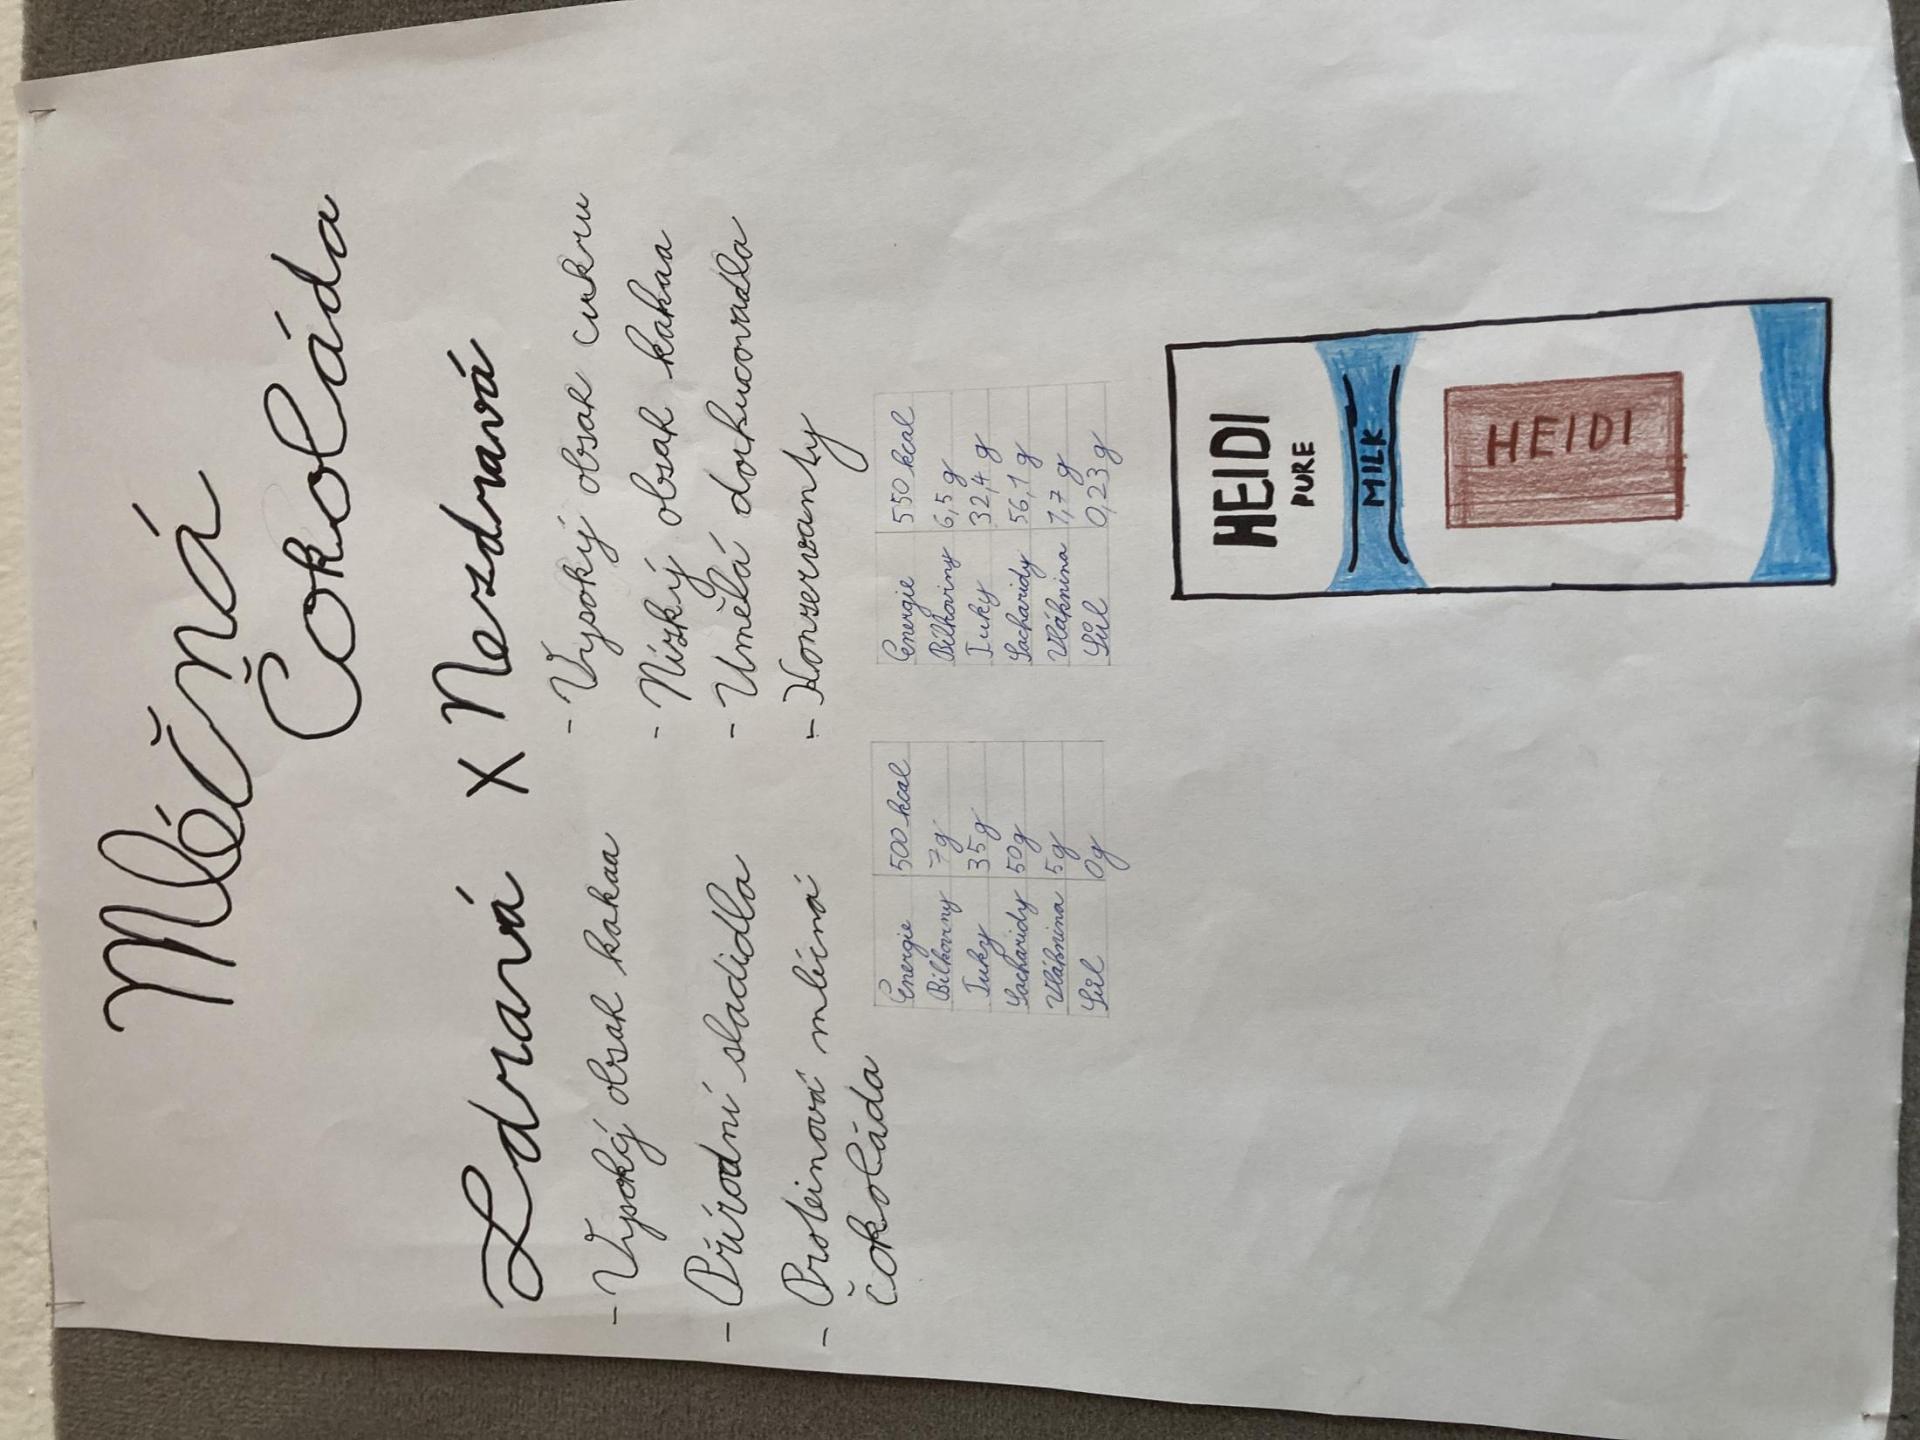 Mléčná
Čokoláda
Zdravá X Nezdravá
- Vysoký obsah kakaa
- Přírodní sladidla
- Proteinová mléčná
čokoláda
- Vysoký obsah cukru
- Nízký obsah kakaa
- Umělá dochucovadla
- Konzervanty
Energie 500 kcal
Bílkoviny 7g
Tuky 35g
Sacharidy 50g
Vláknina 5g
Sůl 0g
Energie 550 kcal
Bílkoviny 6,5 g
Tuky 32,4 g
Sacharidy 56,1 g
Vláknina 1,7 g
Sůl 0,23 g
HEIDI
PURE
MILK
HEIDI